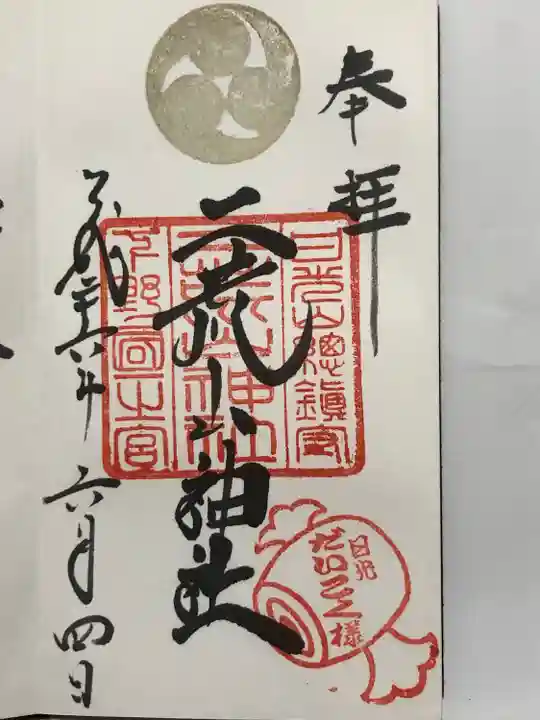 奉拝
日光山總鎮守
二荒山神社
二荒山神社
下野國一之宮
平成二十六年六月四日
日光
だいこく様